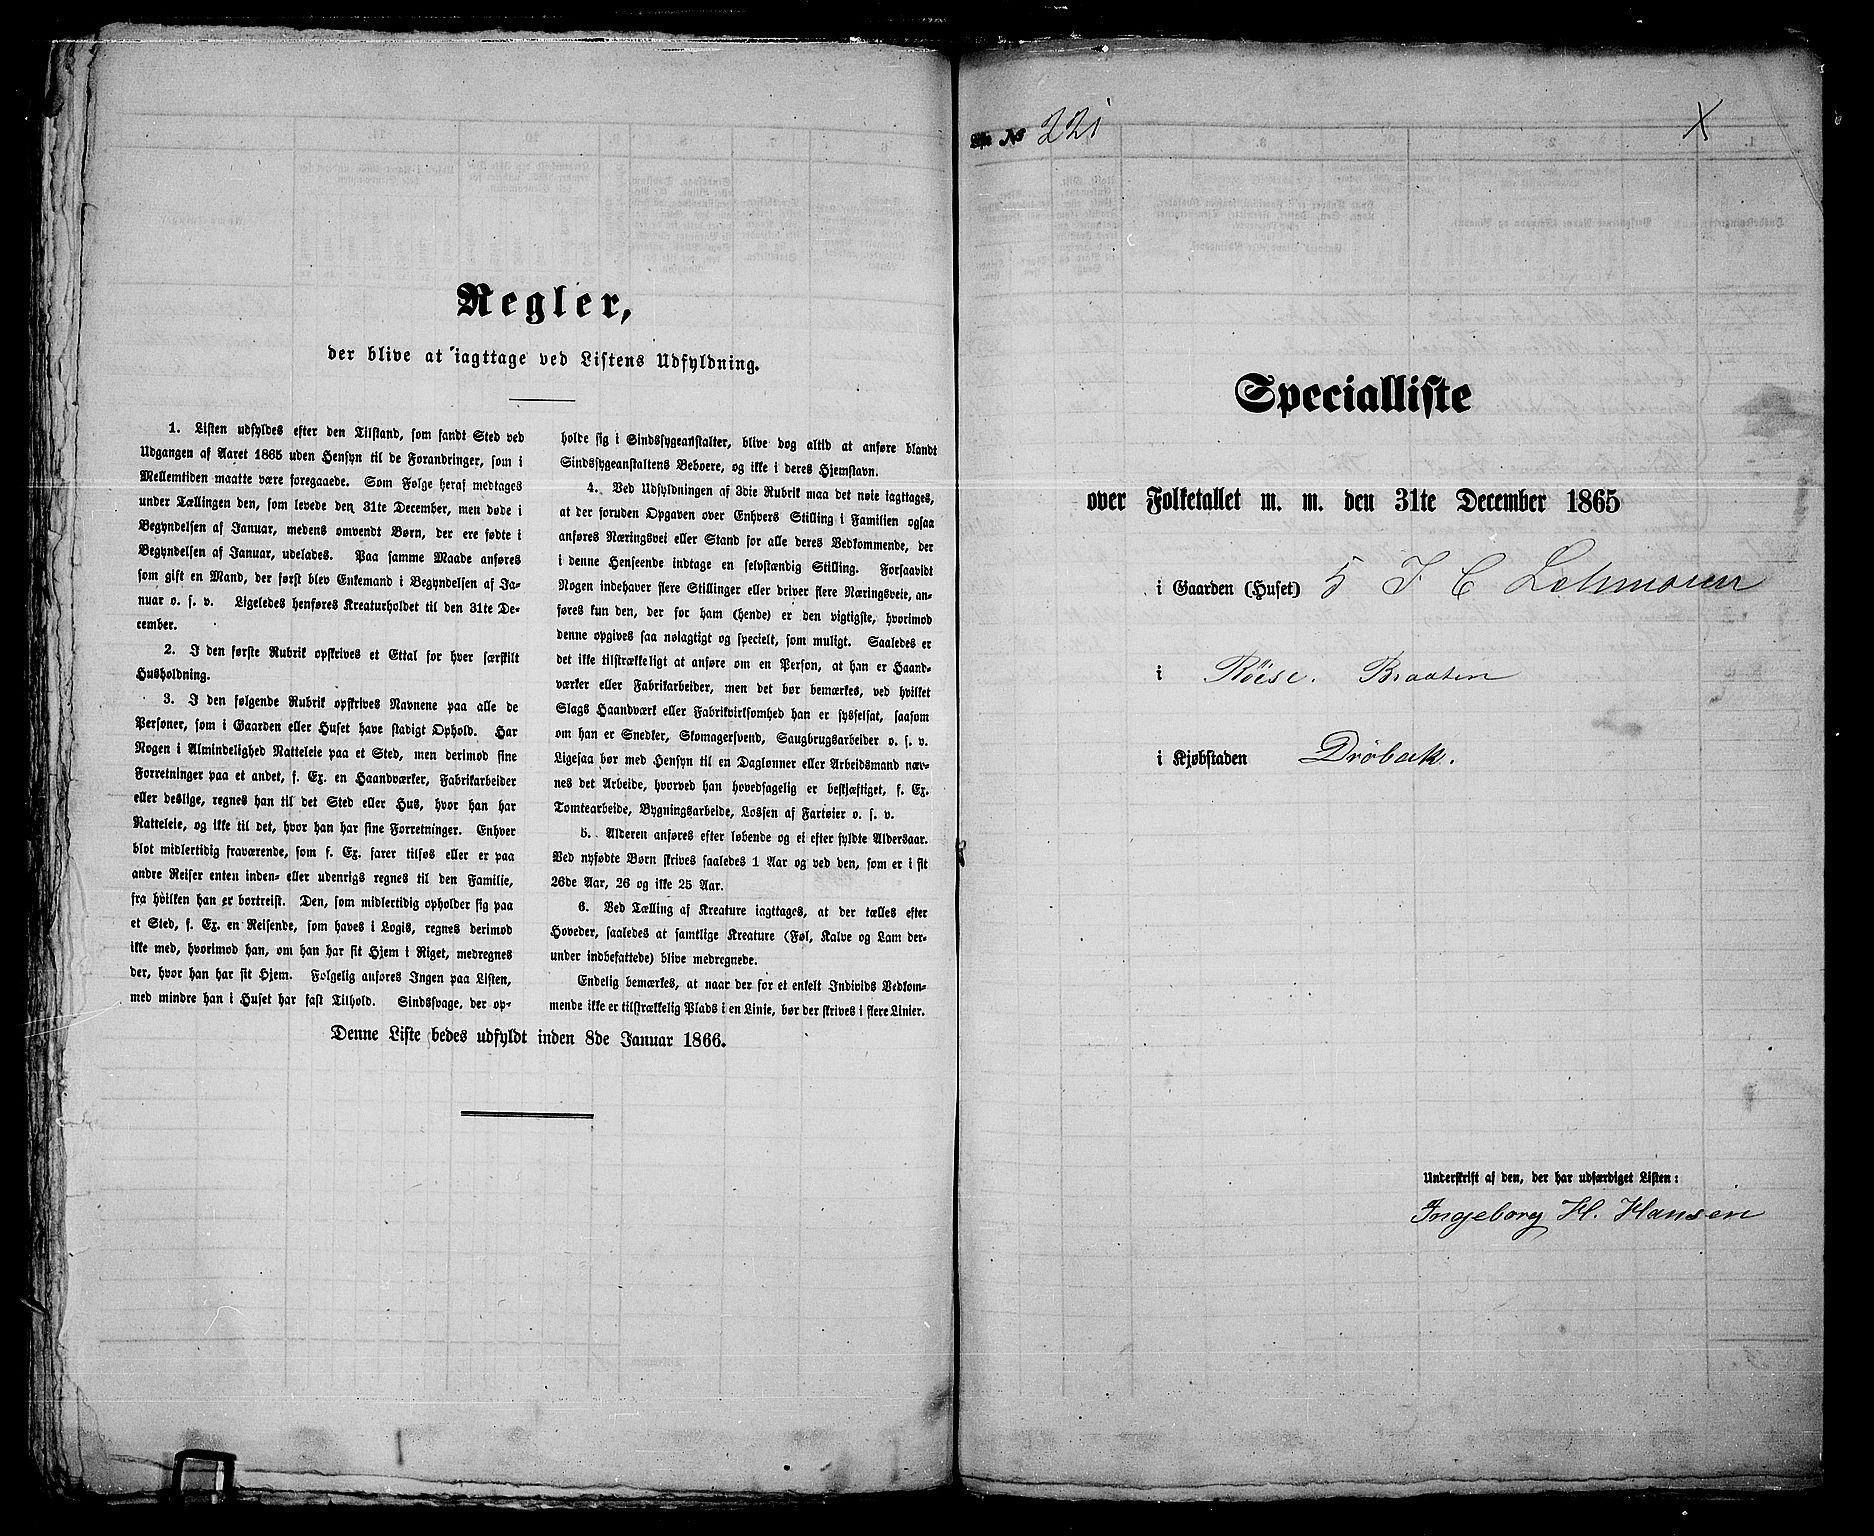 Regler,
der blive at iagttage ved Listens Udfyldning.
1. Listen udfyldes efter den Tilstand, som fandt Sted ved
Udgangen af Aaret 1865 uden Hensyn til de Forandringer, som i
Mellemtiden maatte være foregaaede. Som Følge heraf medtages
under Tællingen den, som levede den 31te December, men døde i
Begyndelsen af Januar, medens omvendt Børn, der ere fødte i
Begyndelsen af Januar, udelades. Paa samme Maade anføres
som gift en Mand, der først blev Enkemand i Begyndelsen af Ja-
nuar o. s. v. Ligeledes henføres Kreaturholdet til den 31te De-
cember.
2. I den første Rubrik opskrives et Ettal for hver særskilt
Husholdning.
3. I den følgende Rubrik opskrives Navnene paa alle de
Personer, som i Gaarden eller Huset have stadigt Ophold. Har
Nogen i Almindelighed Natteleie paa et Sted, men derimod sine
Forretninger paa et andet, f. Ex. en Haandværker, Fabrikarbeider
eller deslige, regnes han til det Sted eller Hus, hvor han har
Natteleie, og ikke til det, hvor han har sine Forretninger. Enhver
blot midlertidig fraværende, som f. Ex. farer tilsøs eller er paa
andre Reiser enten inden- eller udenrigs regnes til den Familie,
fra hvilken han er bortreist. Den, som midlertidig opholder sig paa
et Sted, f. Ex. en Reisende, som haves i Logis, regnes derimod
ikke med, hvorimod han, om han har sit Hjem i Riget, medregnes
der, hvor han har sit Hjem. Følgelig anføres Ingen paa Listen,
med mindre han i Huset har fast Tilhold. Sindssvage, der op-
holde sig i Sindssygeanstalter, blive dog altid at anføre blandt
Sindssygeanstaltens Beboere, og ikke i deres Hjemstavn.
4. Ved Udfyldningen af 3die Rubrik maa det nøie iagttages,
at der foruden Opgaven over Enhvers Stilling i Familien ogsaa
anføres Næringsvei eller Stand for alle deres Vedkommende, der
i denne Henseende indtage en selvstændig Stilling. Forsaavidt
Nogen indehaver flere Stillinger eller driver flere Næringsveie, an-
føres kun den, der for ham (hende) er den vigtigste, hvorimod
denne opgives saa nøiagtigt og specielt, som muligt. Saaledes er
det ikke tilstrækkeligt at anføre om en Person, at han er Haand-
værker eller Fabrikarbeider, men det bør bemærkes, ved hvilket
Slags Haandværk eller Fabrikvirksomhed han er sysselsat, saasom
om han er Snedker, Skomagersvend, Saugbrugsarbeider o. s. v.
Ligesaa bør med Hensyn til en Daglønner eller Arbeidsmand næv-
nes det Arbeide, hvorved han hovedsagelig er beskjæftiget, f. Ex.
Tomtearbeide, Bygningsarbeide, Lossen af Fartøier o. s. v.
5. Alderen anføres efter løbende og ei efter fyldte Aldersaar.
Ved nyfødte Børn skrives saaledes 1 Aar og ved den, som er i sit
26de Aar, 26 og ikke 25 Aar.
6. Ved Tælling af Kreature iagttages, at der tælles efter
Hoveder, saaledes at samtlige Kreature (Føl, Kalve og Lam der-
under indbefattede) blive medregnede.
Endelig bemærkes, at naar der for et enkelt Individs Vedkom-
mende ikke er tilstrækkelig Plads i en Linie, bør der skrives i flere Linier.
Denne Liste bedes udfyldt inden 8de Januar 1866.
Liste No 221
X
Specialliste
over Folketallet m. m. den 31te December 1865
i Gaarden (Huset) 5 J C Lehmann
i Röise. Braaten
i Kjøbstaden Dröbak.
Underskrift af den, der har udfærdiget Listen:
Ingeborg H. Hansen